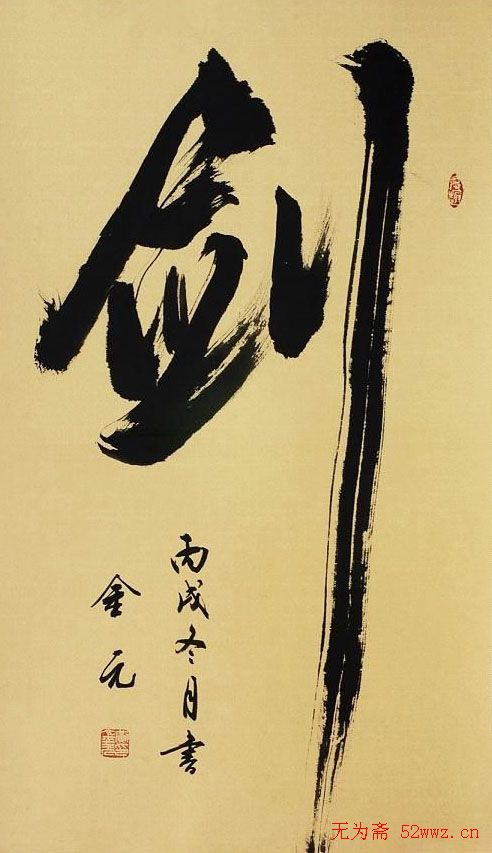 剑
丙戌冬月书
金元
无为斋 52wwz.cn